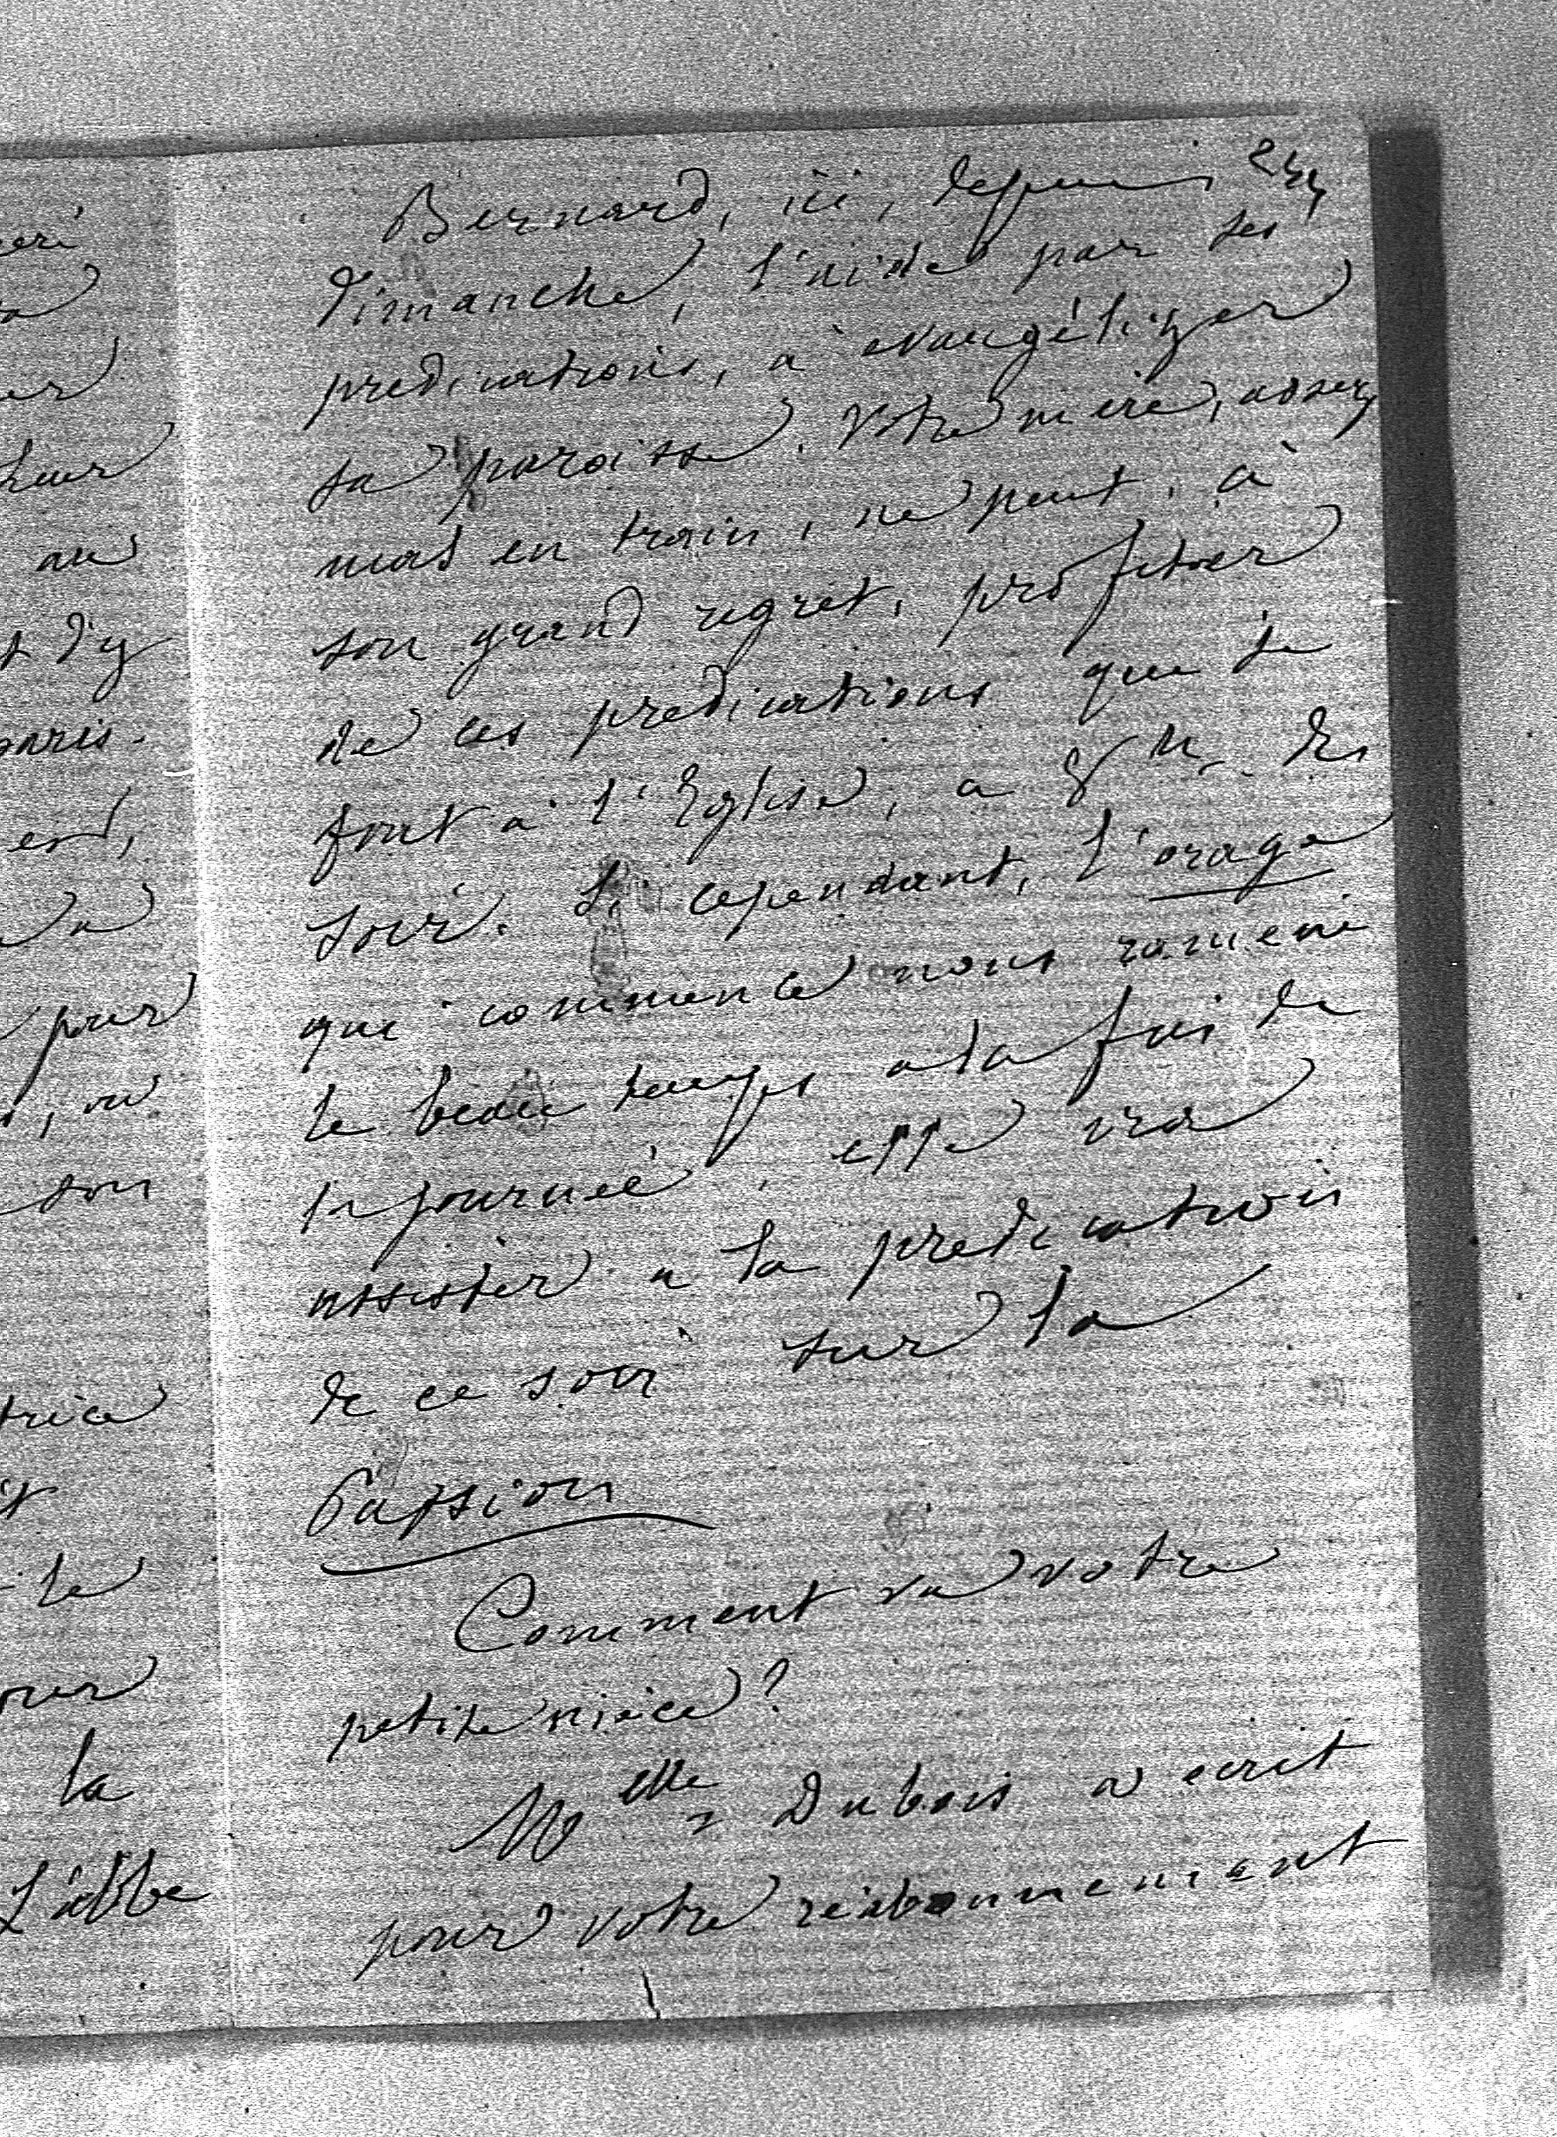 Bernard, ici, depuis
dimanche, l'aide par ses
predications, a evangélizer
sa paroisse. Votre mère, assez
mal en train, ne peut, à
son grand regret, profiter
de ces predications que se
font a l'Eglise, a 8 h du
soir. Si cependant, l'orage
qui commence nous ramène
le beau temps a la fin de
la journée, elle ira
assister a la predication
de ce soir sur la
Passion
Comment va votre
petite nièce?
Melle Dubois a ecrit
pour votre réabonnement
au
d'y
pour
son
le
la
L'abbe